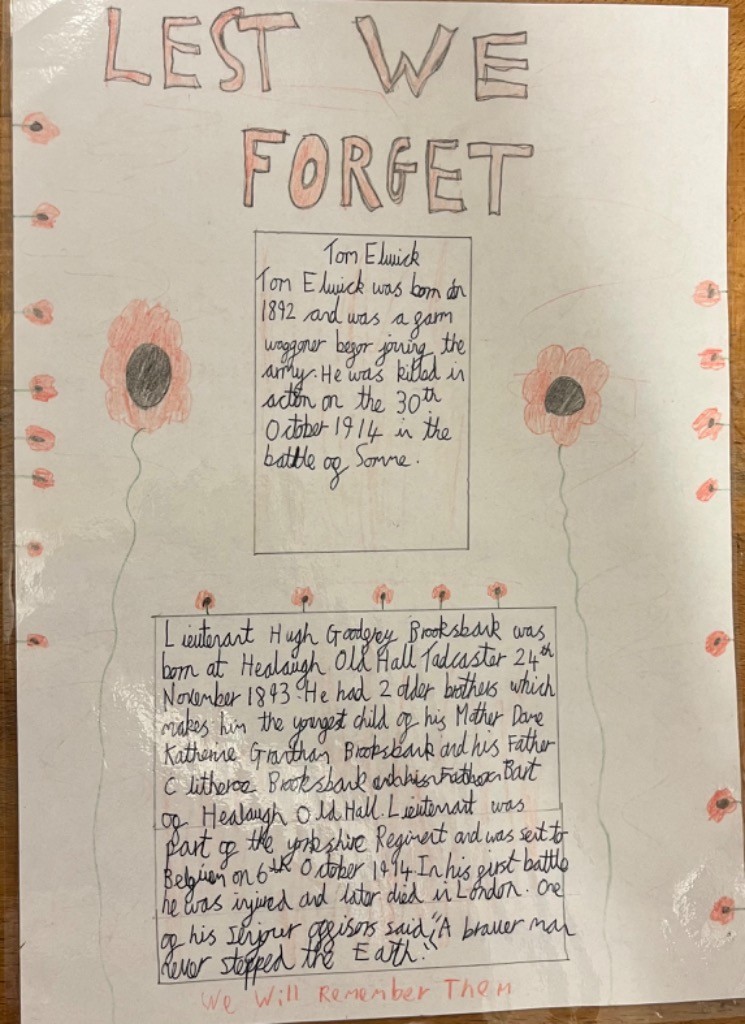 LEST WE
FORGET
Tom Elwick
Tom Elwick was born in
1892 and was a farm
waggoner befor joining the
army. He was killed in
acton on the 30th
October 1914 in the
battle of Somme.
Lieutenant Hugh Godfrey Brooksbank was
born at Healaugh Old Hall Tadcaster 24th
November 1893. He had 2 older brothers which
makes him the youngest child of his Mother Dame
Katherine Grantham Brooksbank and his Father
Clitheroe Brooksbank Bart
of Healaugh Old Hall. Lieutenant was
part of the yorkshire Regiment and was sent to
Belguim on 6th October 1914. In his first battle
he was injured and later died in London. One
of his Seniour offisors said, "A braver man
never stepped the Earth."
We Will Remember Them